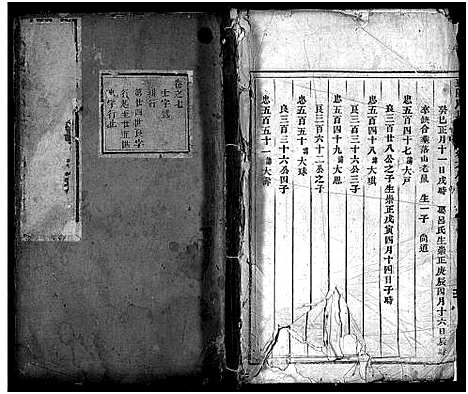 癸巳正月十一日戌時 娶呂氏生崇正庚辰四月十六日辰時
生一子 尚道
忠五百四十七 諱大戶
良三百廿八公之子生崇正戊寅四月十四日子時
忠五百四十八 諱大琪
良三百三十六公三子
忠五百四十九 諱大恩
良三百六十二公之子
忠五百五十 諱大球
良三百三十六公四子
忠五百五十一 諱大壽
卷之七
士字號
排行
第廿四世良字
行起至廿五世
忠字行止